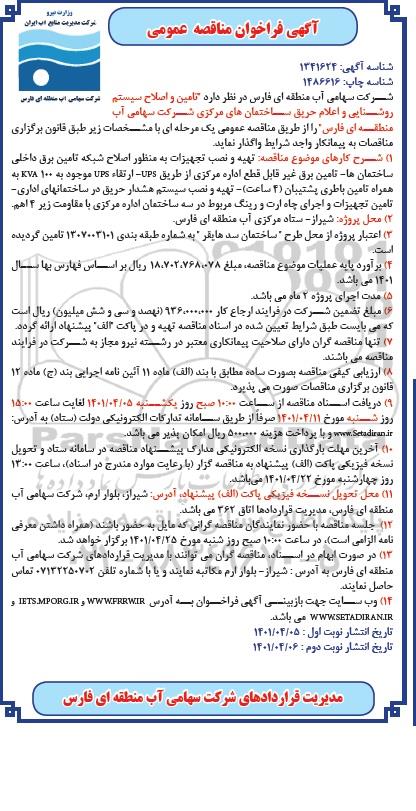 وزارت نیرو
شرکت مدیریت منابع آب ایران
آگهی فراخوان مناقصه عمومی
شرکت سهامی آب منطقه ای فارس
شناسه آگهی: ۱۳۴۱۶۲۴
شناسه چاپ: ۱۴۸۶۶۱۶
شـــرکت سهامی آب منطقه ای فارس در نظر دارد "تامین و اصلاح سیستم
روشـــنایی و اعلام حریق ســـاختمان های مرکزی شـــرکت سهامی آب
منطقـــه ای فارس" را از طریق مناقصه عمومی یک مرحله ای با مـــشخصات زیر طبق قانون برگزاری
مناقصات به پیمانکار واجد شرایط واگذار نماید.
۱) شـــرح کارهای موضوع مناقصه: تهیه و نصب تجهیزات به منظور اصلاح شبکه تامین برق داخلی
ساختمان ها- تامین برق غیر قابل قطع اداره مرکزی از طریق UPS- ارتقاء UPS موجود به ۱۰۰ KVA به
همراه تامین باطری پشتیبان (۴ ساعت)- تهیه و نصب سیستم هشدار حریق در ساختمانهای اداری-
تامین تجهیزات و اجرای چاه ارت و رینگ مربوط در سه ساختمان اداره مرکزی با مقاومت زیر ۴ اهم.
۲) محل پروژه: شیراز- ستاد مرکزی آب منطقه ای فارس.
۳) اعتبار پروژه از محل طرح "ساختمان سد هایقر" به شماره طبقه بندی ۱۳۰۷۰۰۳۱۰۱ تامین گردیده
است.
۴) برآورد پایه عملیات موضوع مناقصه، مبلغ ۱۸،۷۰۲،۷۶۸،۰۷۸ ریال بر اســـاس فهارس بها ســـال
۱۴۰۱ می باشد.
۵) مدت اجرای پروژه ۲ ماه می باشد.
۶) مبلغ تضمین شـــرکت در فرایند ارجاع کار ۹۳۶،۰۰۰،۰۰۰ (نهصد و سی و شش میلیون) ریال است
که می بایست طبق شرایط تعیین شده در اسناد مناقصه تهیه و در پاکت "الف" پیشنهاد ارائه گردد.
۷) تنها مناقصه گران دارای صلاحیت پیمانکاری معتبر در رشـــته نیرو مجاز به شـــرکت در فرایند
مناقصه می باشند.
۸) ارزیابی کیفی مناقصه بصورت ساده مطابق با بند (الف) ماده ۱۱ آئین نامه اجرایی بند (ج) ماده ۱۲
قانون برگزاری مناقصات صورت می پذیرد.
۹) دریافت اســـناد مناقصه از ســـاعت ۱۰:۰۰ صبح روز یکشـــنبه ۱۴۰۱/۰۴/۰۵ لغایت ساعت ۱۵:۰۰
روز شـــنبه مورخ ۱۴۰۱/۰۴/۱۱ صرفاً از طریق ســـامانه تدارکات الکترونیکی دولت (ستاد) به آدرس:
www.Setadiran.ir و با پرداخت هزینه ۵۰۰،۰۰۰ ریال امکان پذیر می باشد.
۱۰) آخرین مهلت بارگذاری نسخه الکترونیکی مدارک پیشـــنهاد مناقصه در سامانه ستاد و تحویل
نسخه فیزیکی پاکت (الف) پیشنهاد به مناقصه گزار (با رعایت موارد مندرج در اسناد)، ساعت ۱۳:۰۰
روز چهارشنبه مورخ ۱۴۰۱/۰۴/۲۲ می‌باشد.
۱۱) محل تحویل نســـخه فیزیکی پاکت (الف) پیشنهاد، آدرس: شیراز، بلوار ارم، شرکت سهامی آب
منطقه ای فارس، مدیریت قراردادها اتاق ۳۶۲ می باشد.
۱۲) جلسه مناقصه با حضور نمایندگان مناقصه گرانی که مایل به حضور باشند (همراه داشتن معرفی
نامه الزامی است)، در ساعت ۱۰:۰۰ صبح روز شنبه مورخ ۱۴۰۱/۰۴/۲۵ برگزار خواهد شد.
۱۳) در صورت ابهام در اســـناد، مناقصه گران می توانند با مدیریت قراردادهای شرکت سهامی آب
منطقه ای فارس به آدرس : شیراز- بلوار ارم مکاتبه نمایند و یا با شماره تلفن ۰۷۱۳۲۲۵۰۷۰۲ تماس
حاصل نمایند.
۱۴) وب ســـایت جهت بازبینـــی آگهی فراخـــوان بـــه آدرس WWW.FRRW.IR و IETS.MPORG.IR و
WWW.SETADIRAN.IR می باشد.
تاریخ انتشار نوبت اول : ۱۴۰۱/۰۴/۰۵
تاریخ انتشار نوبت دوم : ۱۴۰۱/۰۴/۰۶
مدیریت قراردادهای شرکت سهامی آب منطقه ای فارس